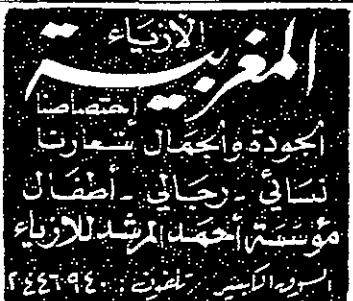 الأزياء
المغربية
إختصاصنا
الجودة والجمال شعارنا
نسائي - رجالي - أطفال
مؤسسة أحمد المرشد للأزياء
السوق الكبير تلفون: ٢٤٤٦٩٤٠